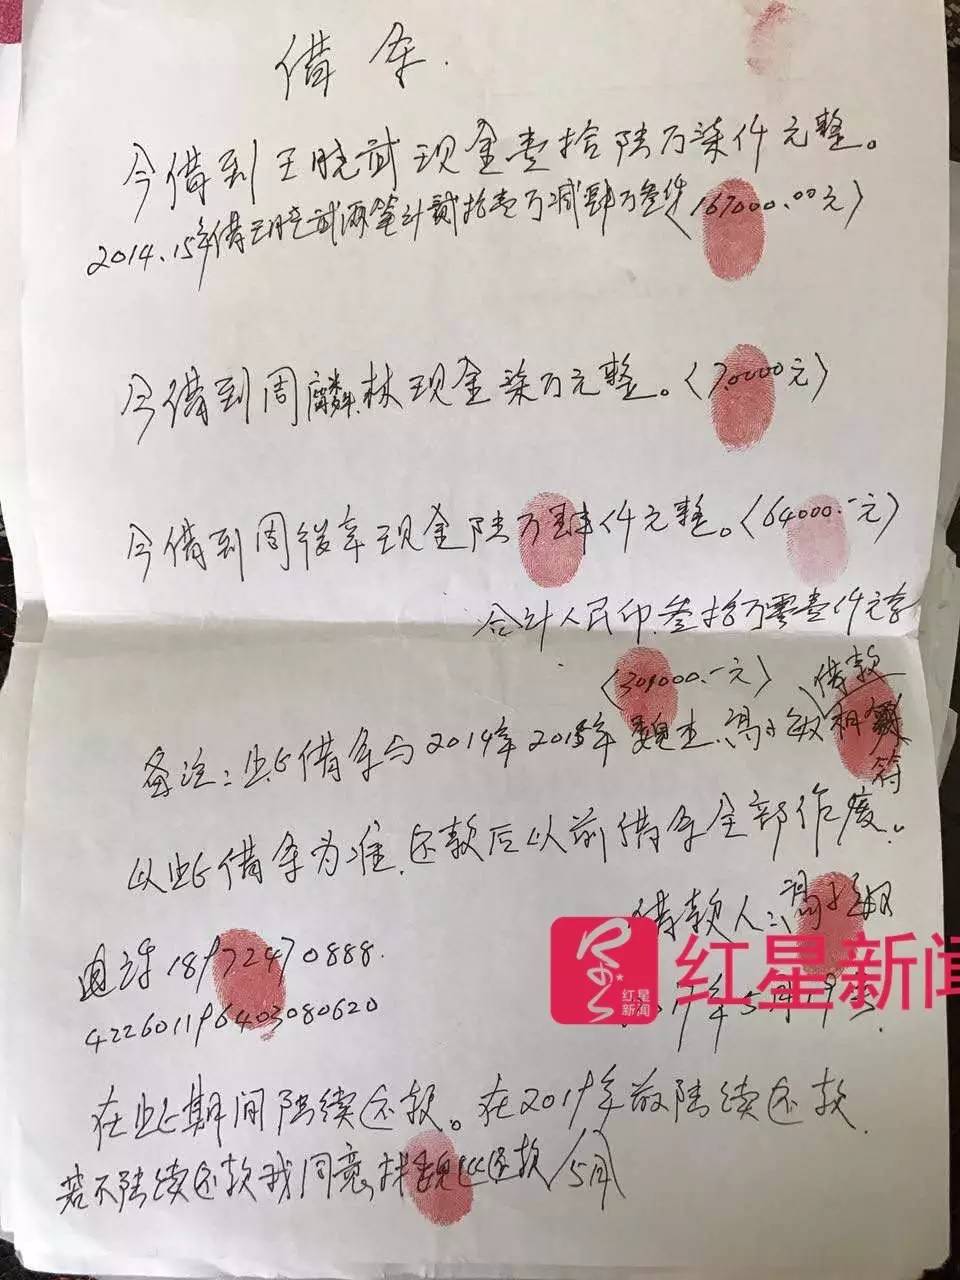 借条.
今借到王晓武现金壹拾陆万柒仟元整。
2014.15年借王晓武两笔计贰拾壹万减肆万叁仟(167000.00元)
今借到周麟林现金柒万元整。(70000元)
今借到周后年现金陆万肆仟元整。(64000.-元)
合计人民币.叁拾万零壹仟元
(301000.-元)
借款
备注:此借条与2014年2015年魏 冯 敏相
符
以此借条为准.还款后以前借条全部作废。
借款人:冯 敏
红星新闻
红星
新闻
年5月19
电话18972470888.
422601196403080620
在此期间陆续还款。在2019年前陆续还款.
若不陆续还款我同意找魏 还款(5月)